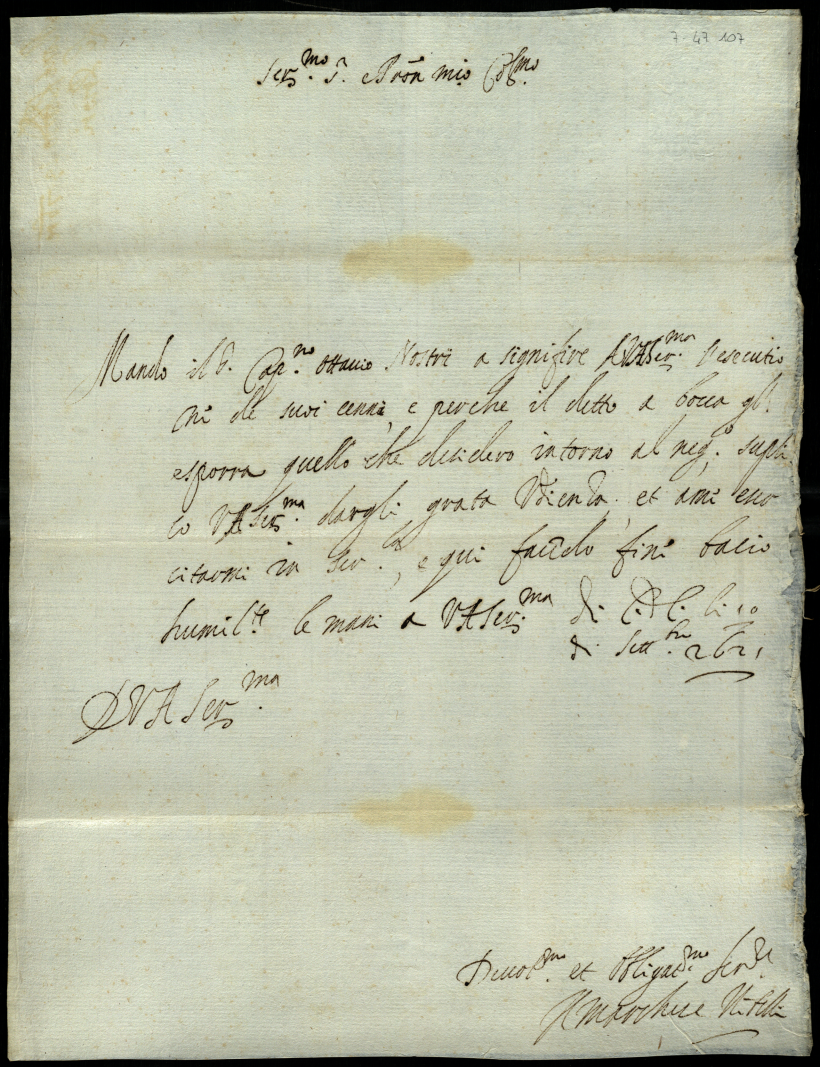 7 - 47 107
Ser.mo S.r e Pròn mio Col.mo
Mando il S. Cap.no Ottavio Nostri a significare A V A Ser.ma l'esecutio
ni de suoi cenni, e perche il detto a bocca gli
esporra quello che desidero intorno al neg.o suppli
co V A Ser.ma dargli grata Udienza, et a me eser
citarmi in ser.la, e qui facēdo fine bacio
humil.te le mani a V A Ser.ma Di C. D C. li 10
di Sett.bre 1621
D V A Ser.ma
Devot.mo et Obligat.mo Ser.re
Il Marchese Vitelli